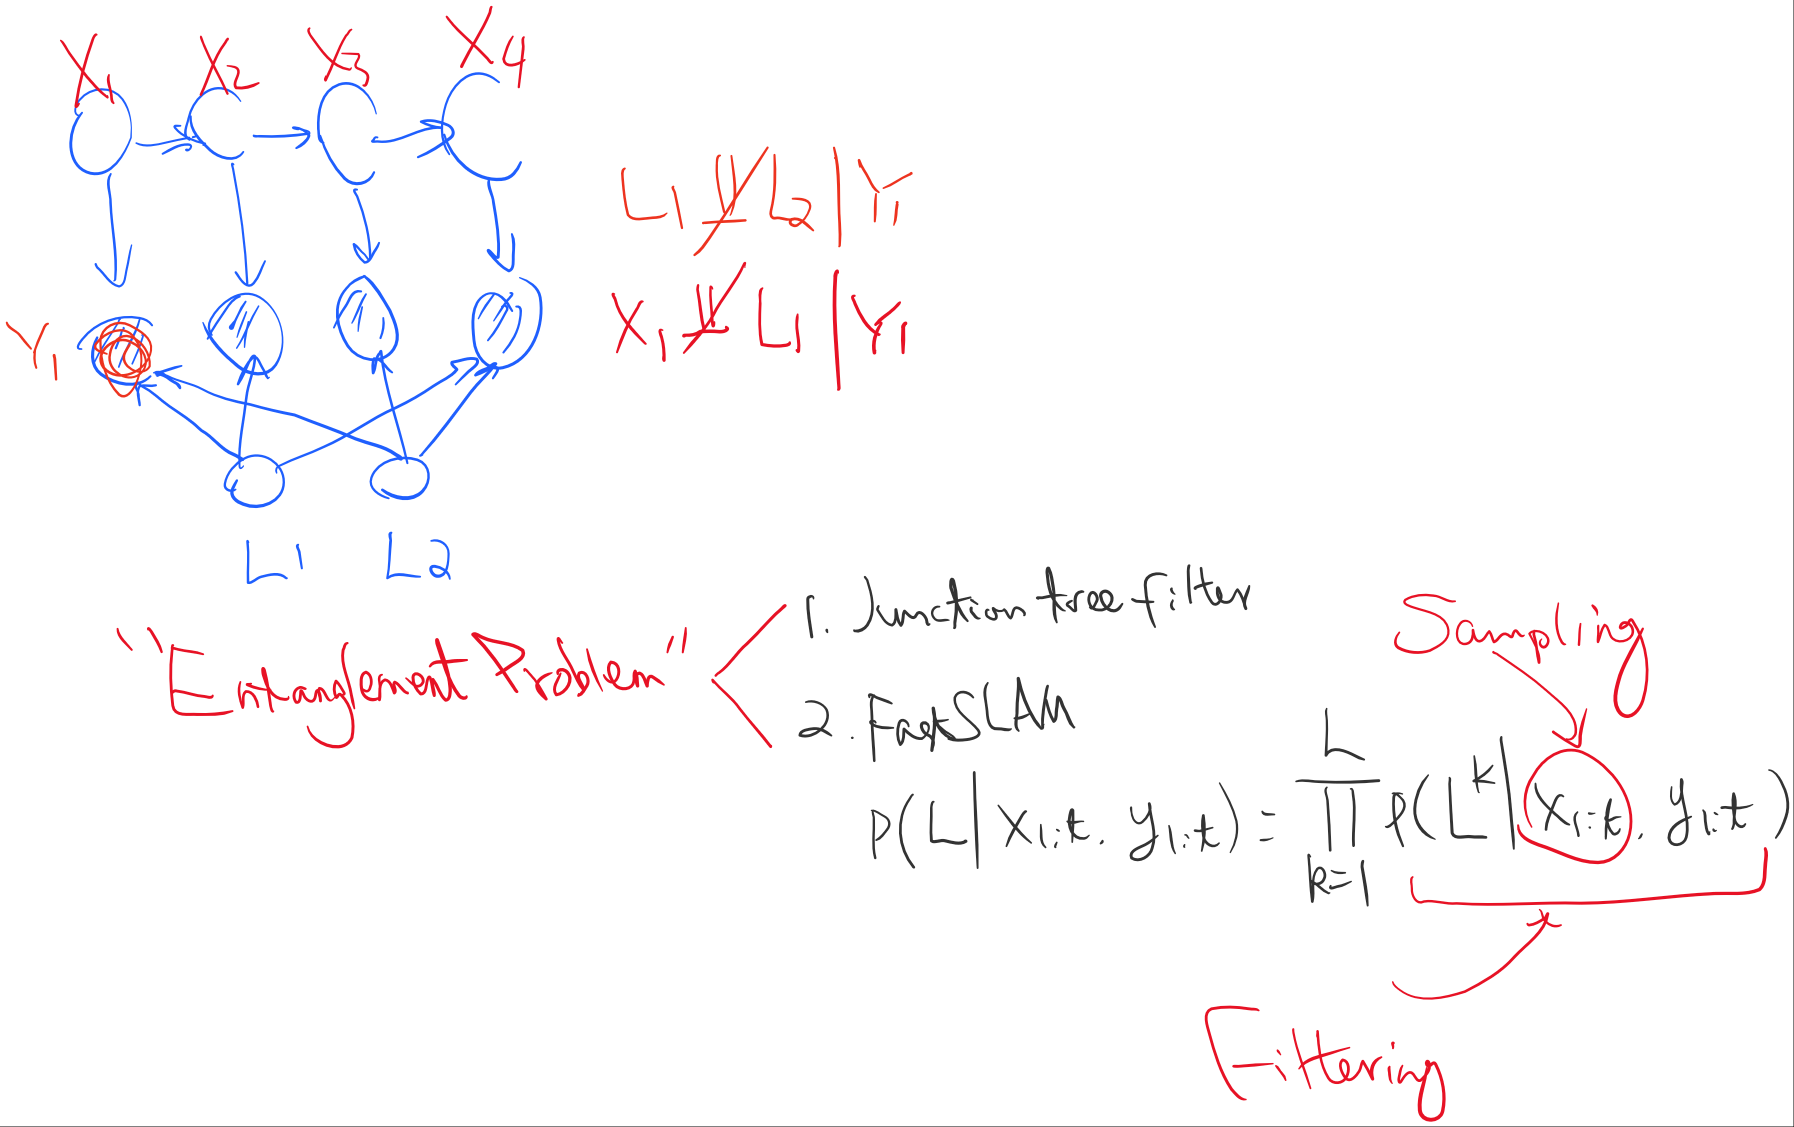 X1 X2 X3 X4
L1 ⫫̸ L2 | Y1
X1 ⫫̸ L1 | Y1
Y1
L1 L2
"Entanglement Problem"
1. Junction tree filter
2. FastSLAM
Sampling
P(L | X1:t, y1:t) = ∏_{k=1}^{L} P(L^k | X1:t, y1:t)
Filtering